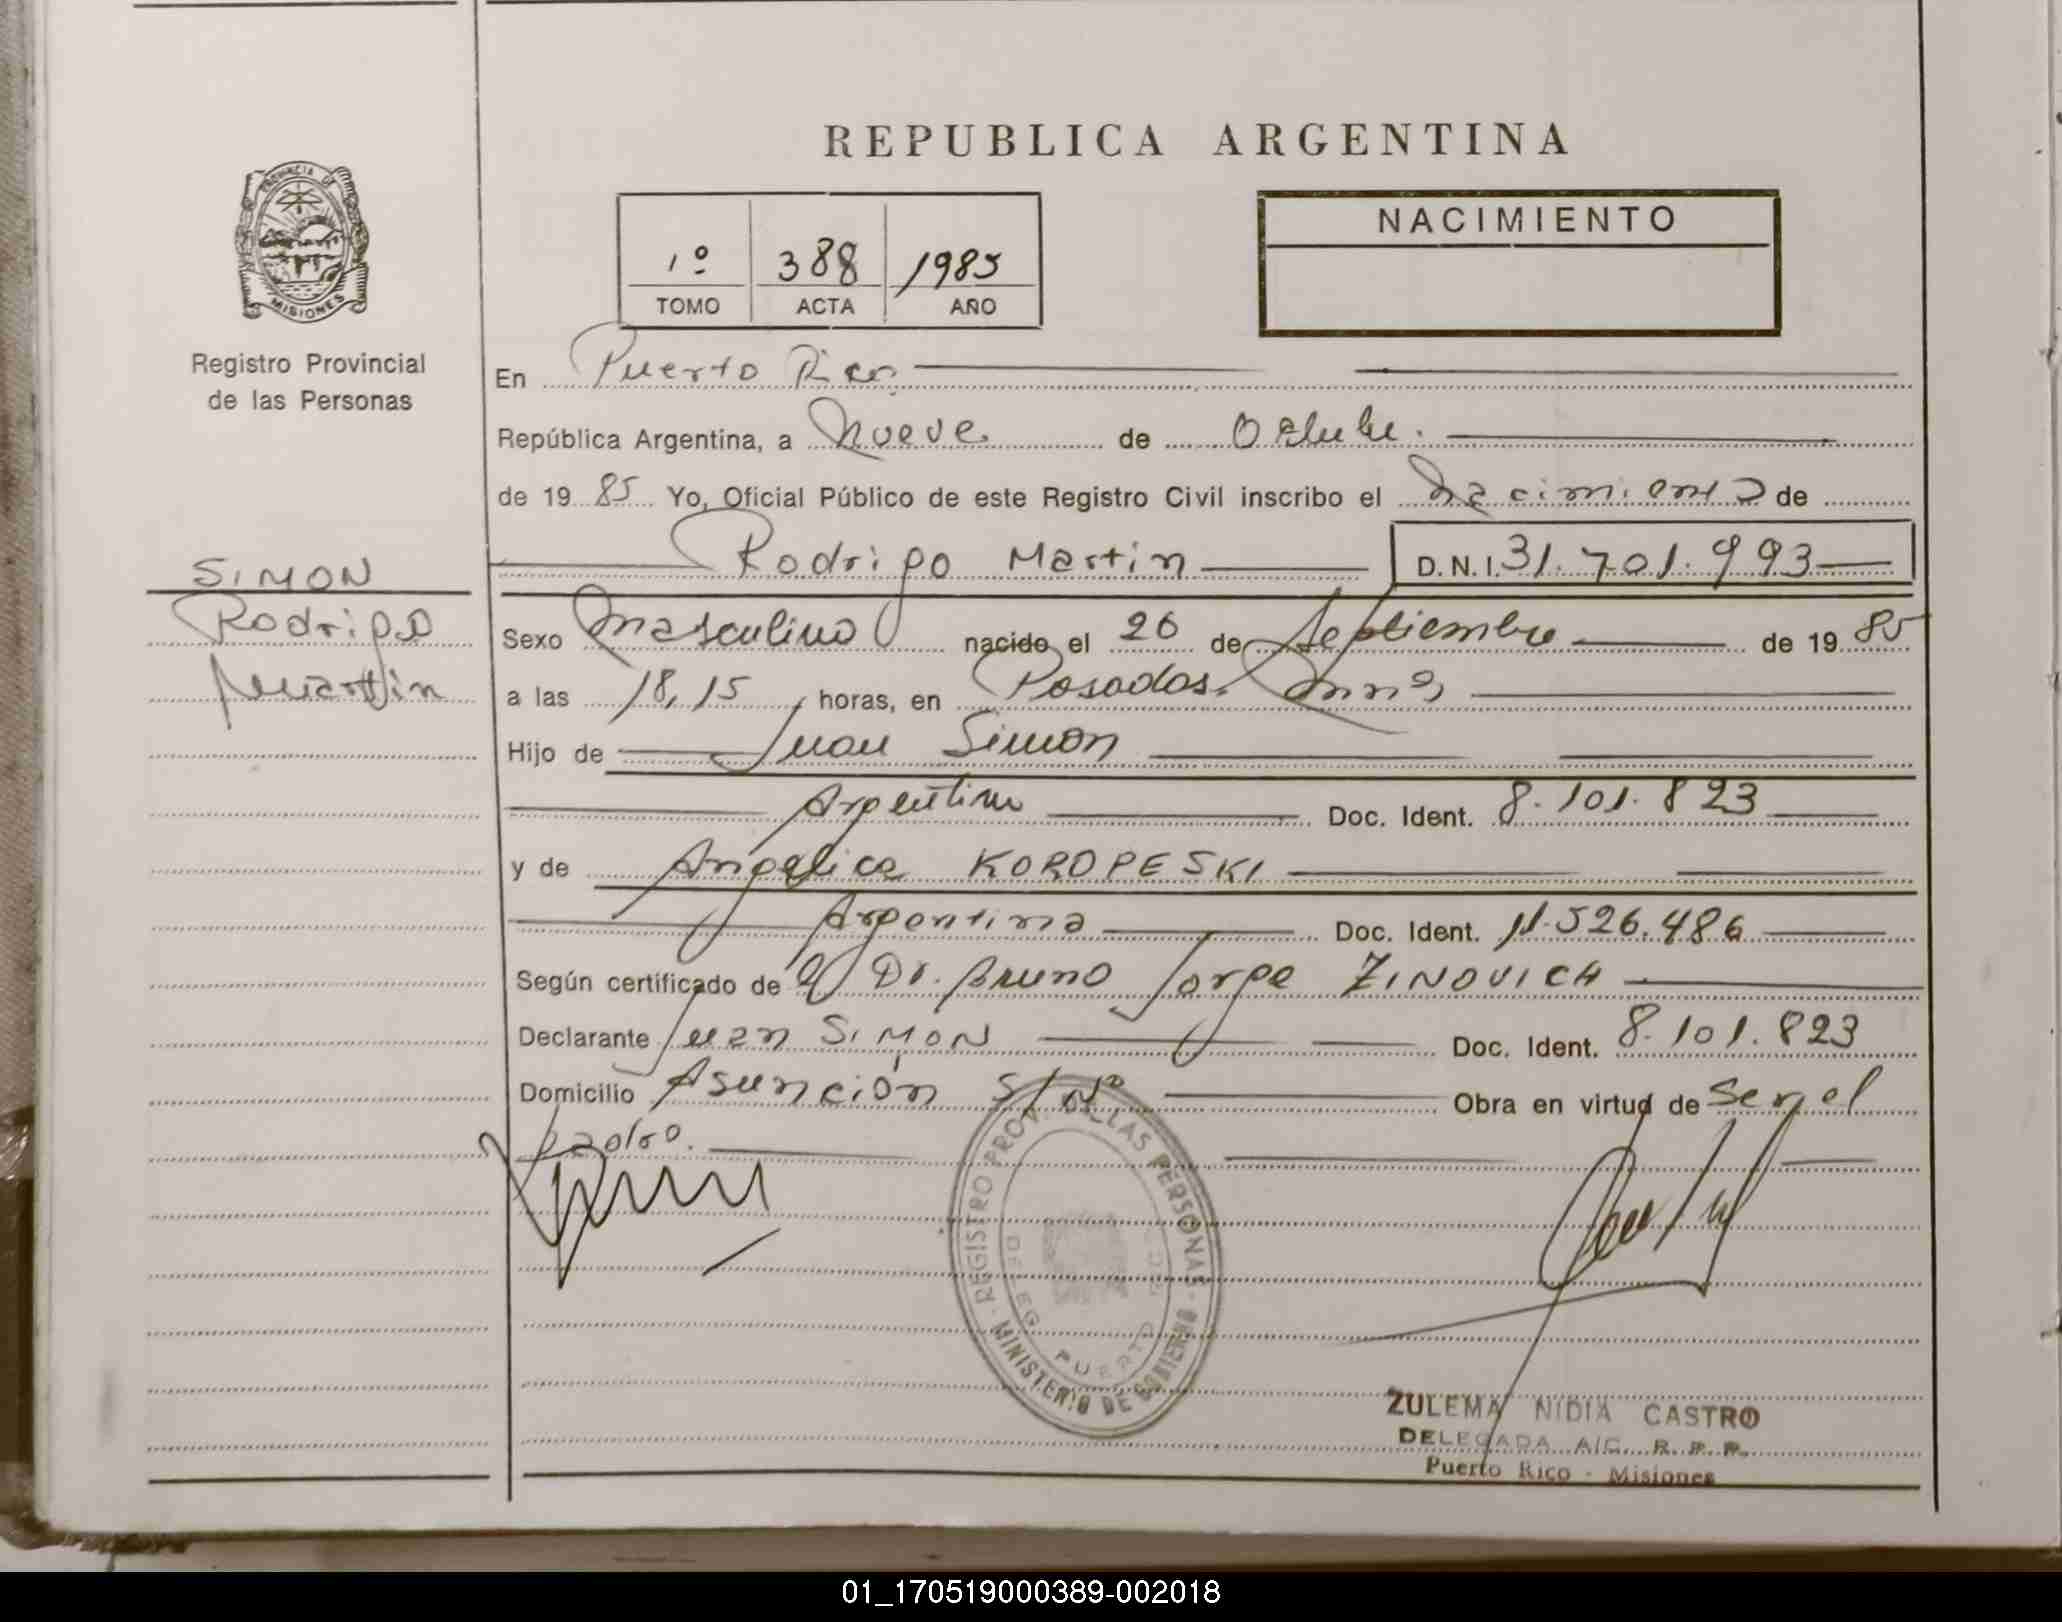 REPUBLICA ARGENTINA
PROVINCIA DE MISIONES
Registro Provincial
de las Personas
1º 388 1985
TOMO ACTA AÑO
NACIMIENTO
En Puerto Rico
República Argentina, a Nueve de Octubre.
de 19 85 Yo, Oficial Público de este Registro Civil inscribo el Nacimiento de
Rodrigo Martin D.N.I. 31.701.993
SIMON
Rodrigo
Martin
Sexo Masculino nacido el 26 de Septiembre de 19 85
a las 18,15 horas, en Posadas. Mnes
Hijo de Juan Simon
Argentino Doc. Ident. 8.101.823
y de Angelica KOROPESKI
Argentina Doc. Ident. 11.526.486
Según certificado de el Dr. Bruno Jorge ZINOVICH
Declarante Juan SIMON Doc. Ident. 8.101.823
Domicilio Asunción S/Nº. Obra en virtud de Ser el
padre.
REGISTRO PROV. DE LAS PERSONAS
MINISTERIO DE GOBIERNO
DELEG. PUERTO RICO
ZULEMA NIDIA CASTRO
DELEGADA A/C. R. P. P.
Puerto Rico - Misiones
01_170519000389-002018